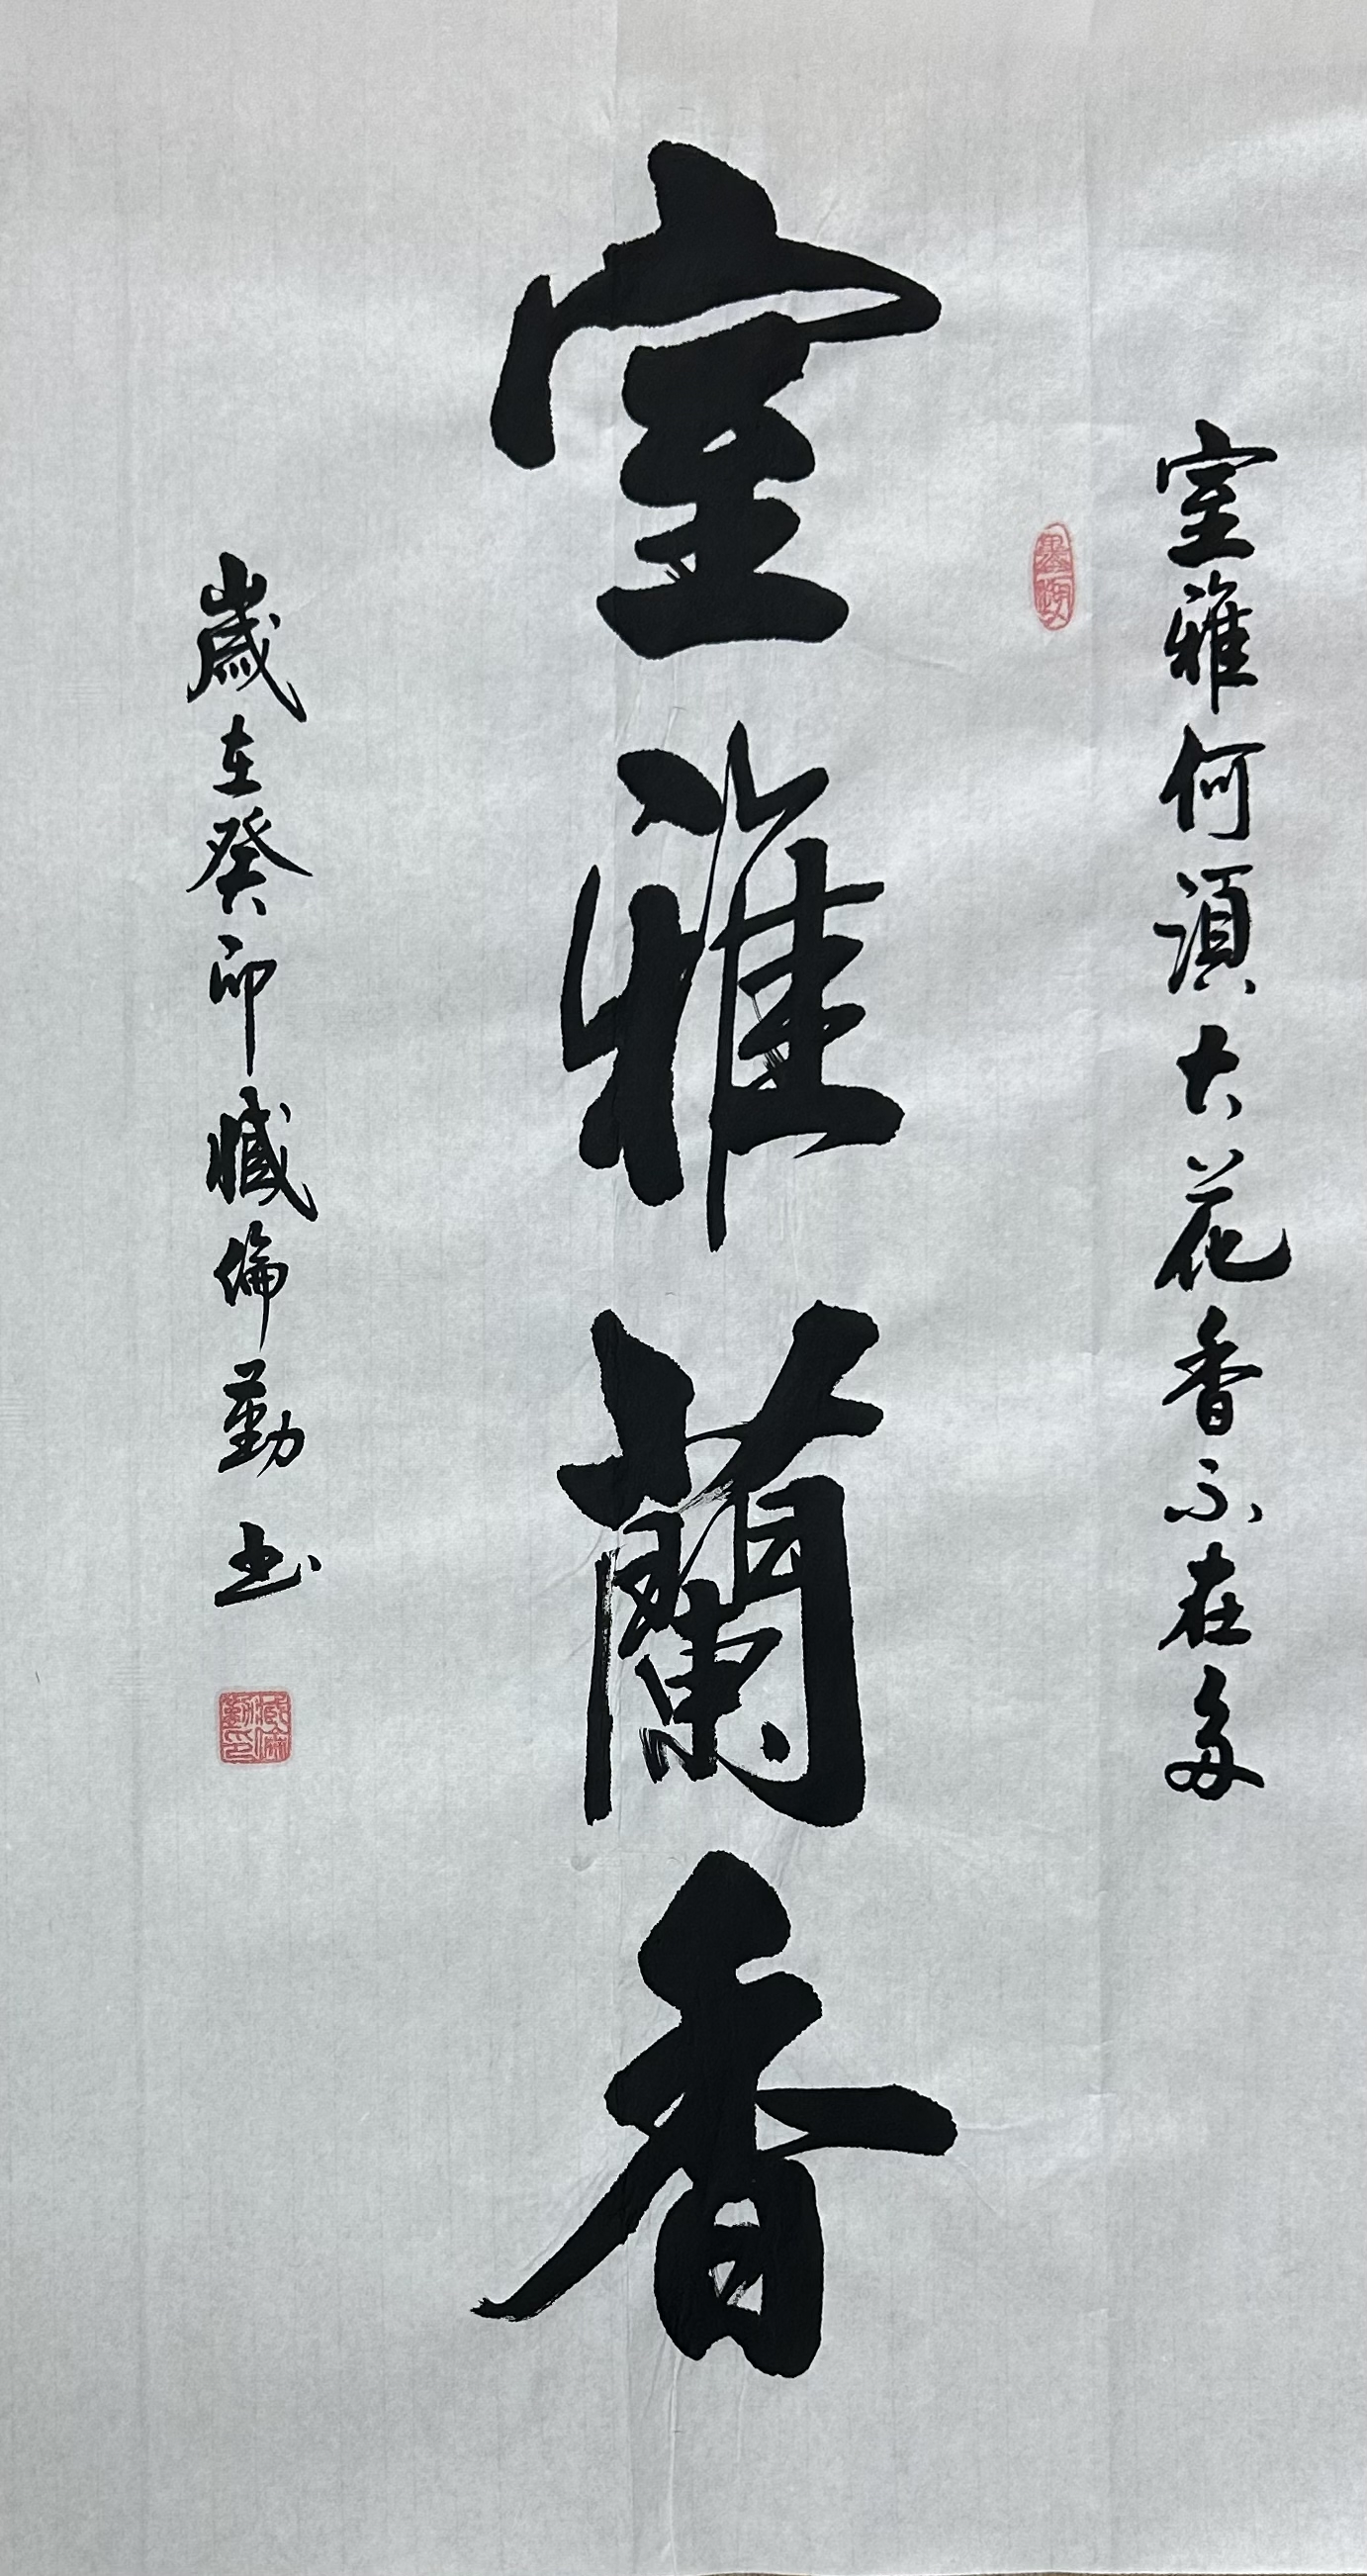 室雅何須大花香不在多
室雅蘭香
歲在癸卯臧倫勤书
臧倫勤印